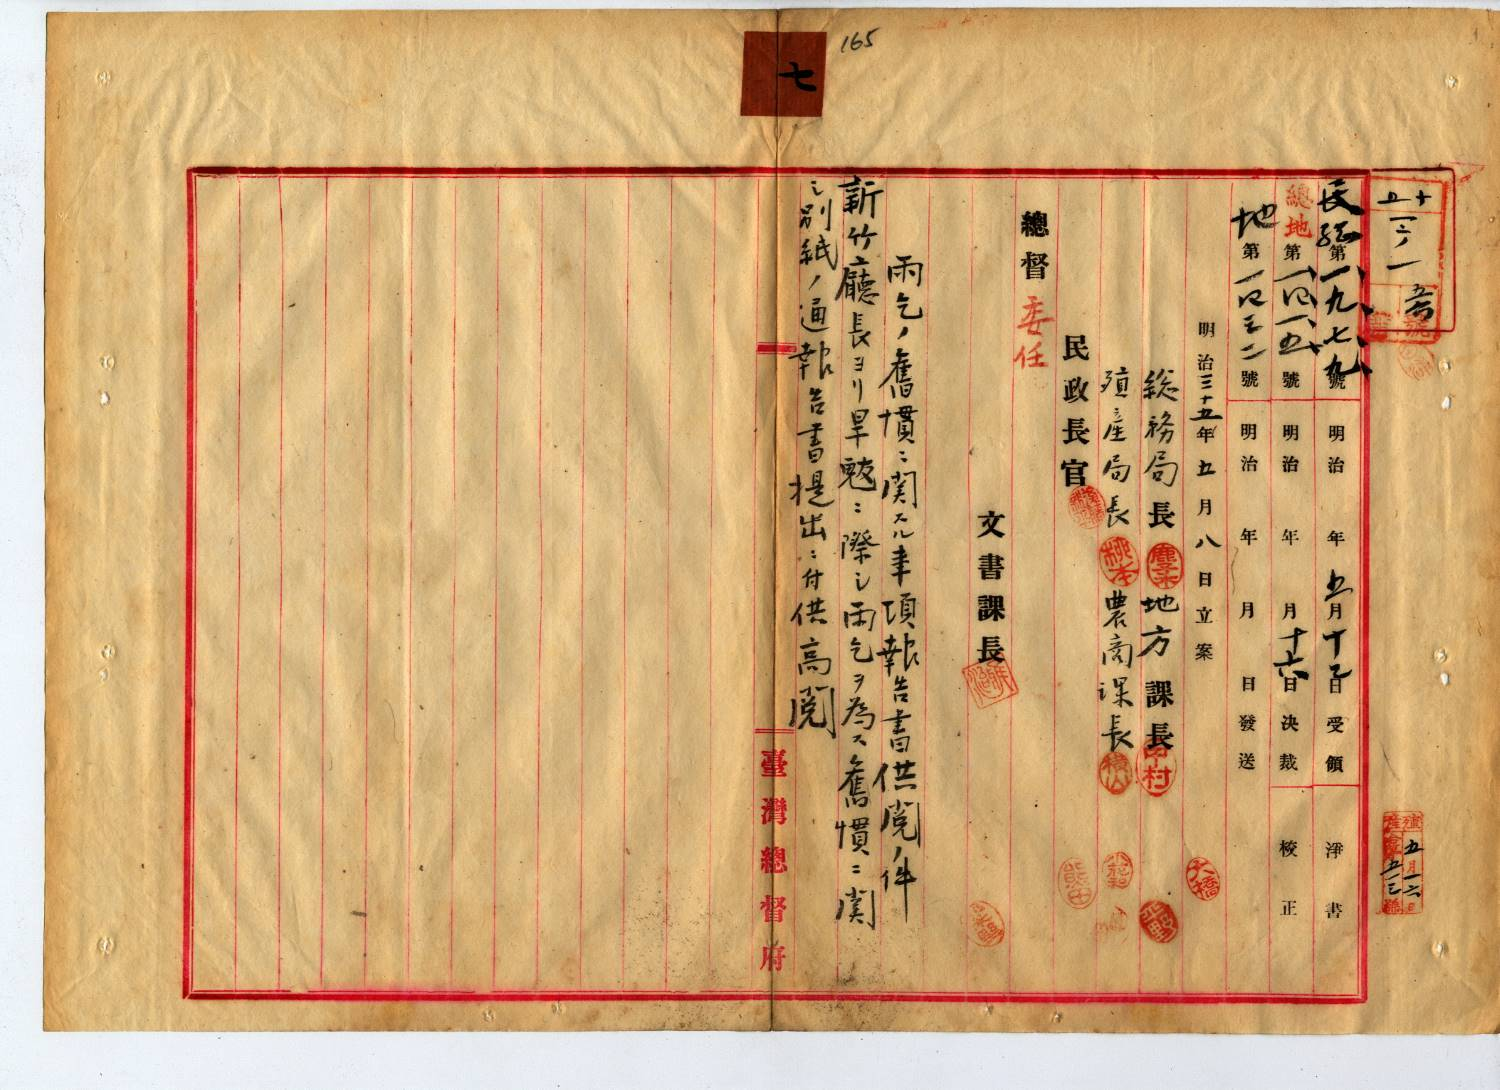 165
七
民總第一九七九號 明治 年五月十二日受領 淨書
總地第一四一五號 明治 年 月十六日決裁 校正
地第一四三二號 明治 年 月 日發送
明治三十五年五月八日立案
総務局長 地方課長 中村
殖產局長 農商課長
大橋
民政長官
總督 委任
文書課長
雨乞ノ舊慣ニ関スル事項報告書供覧ノ件
新竹廳長ヨリ旱魃ニ際シ雨乞ヲ為ス舊慣ニ関
シ別紙ノ通報告書提出ニ付供高覧
臺灣總督府
殖產 五月十六日